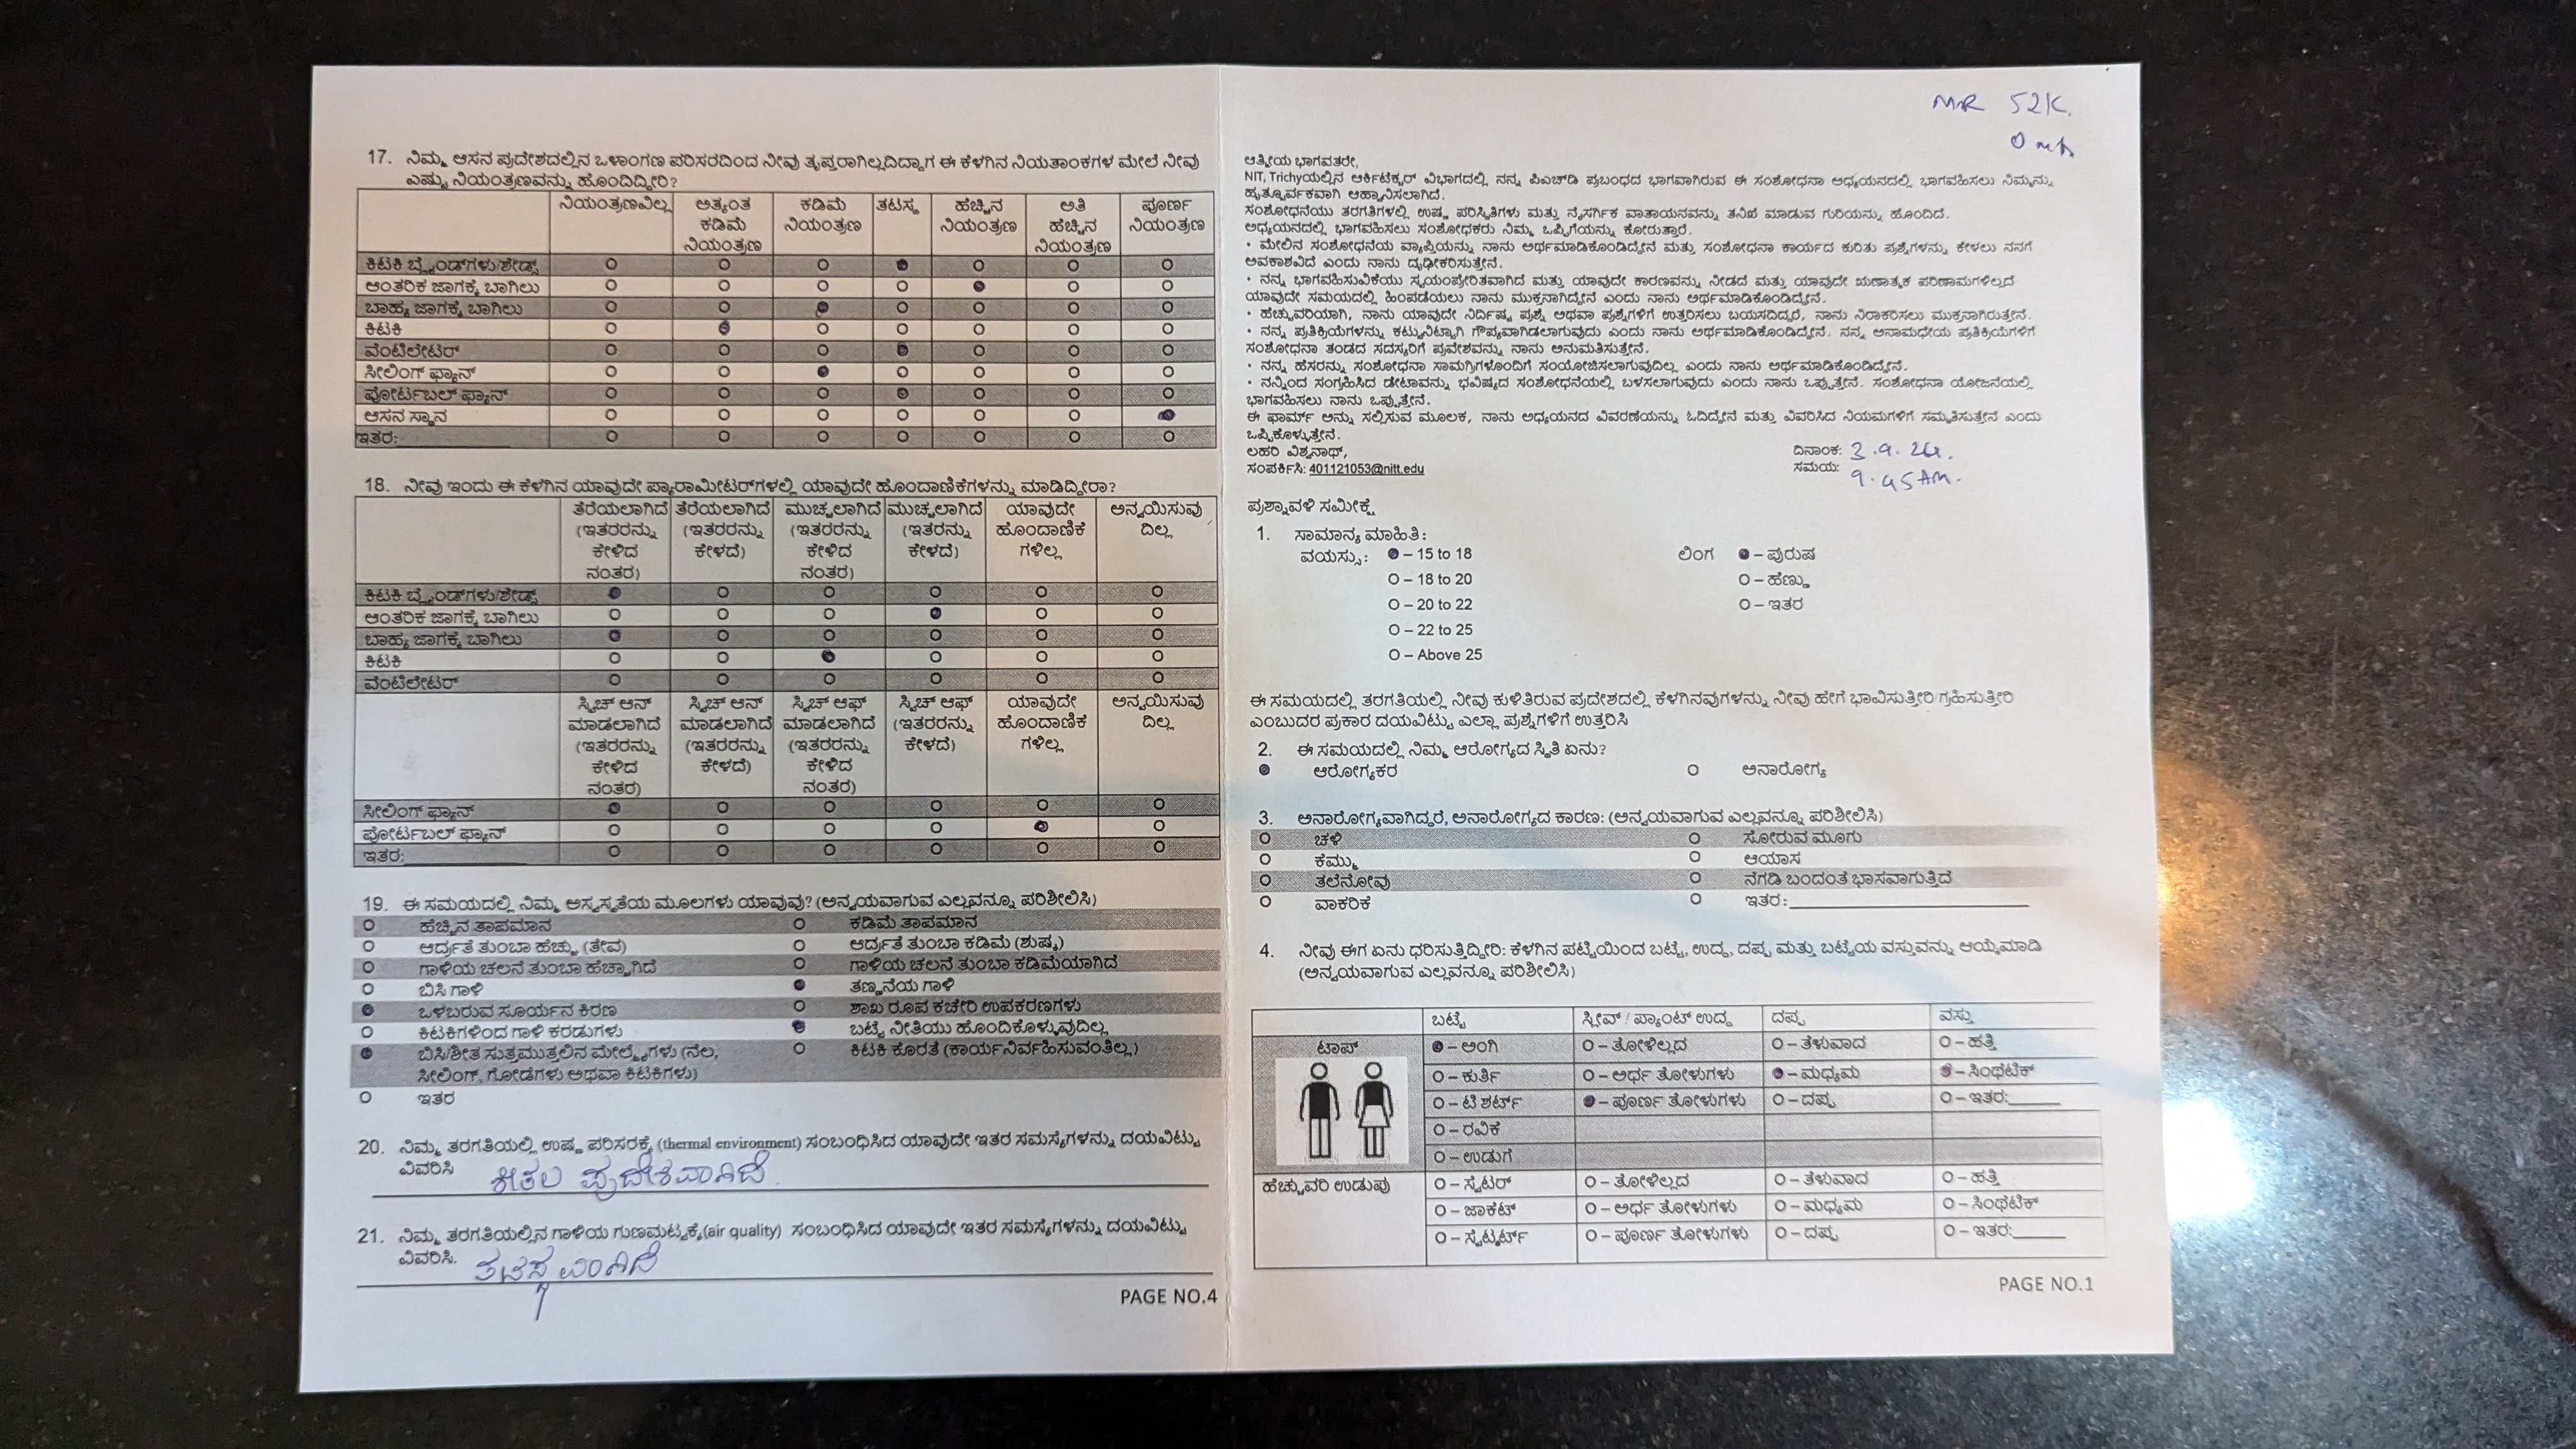 17. ನಿಮ್ಮ ಆಸನ ಪ್ರದೇಶದಲ್ಲಿನ ಒಳಾಂಗಣ ಪರಿಸರದಿಂದ ನೀವು ತೃಪ್ತರಾಗಿಲ್ಲದಿದ್ದಾಗ ಈ ಕೆಳಗಿನ ನಿಯತಾಂಕಗಳ ಮೇಲೆ ನೀವು
ಎಷ್ಟು ನಿಯಂತ್ರಣವನ್ನು ಹೊಂದಿದ್ದೀರಿ?
ನಿಯಂತ್ರಣವಿಲ್ಲ ಅತ್ಯಂತ ಕಡಿಮೆ ನಿಯಂತ್ರಣ ಕಡಿಮೆ ನಿಯಂತ್ರಣ ತಟಸ್ಥ ಹೆಚ್ಚಿನ ನಿಯಂತ್ರಣ ಅತಿ ಹೆಚ್ಚಿನ ನಿಯಂತ್ರಣ ಪೂರ್ಣ ನಿಯಂತ್ರಣ
ಕಿಟಕಿ ಬ್ಲೈಂಡ್‌ಗಳು/ಶೇಡ್ಸ್
ಆಂತರಿಕ ಜಾಗಕ್ಕೆ ಬಾಗಿಲು
ಬಾಹ್ಯ ಜಾಗಕ್ಕೆ ಬಾಗಿಲು
ಕಿಟಕಿ
ವೆಂಟಿಲೇಟರ್
ಸೀಲಿಂಗ್ ಫ್ಯಾನ್
ಪೋರ್ಟಬಲ್ ಫ್ಯಾನ್
ಆಸನ ಸ್ಥಾನ
ಇತರ:
18. ನೀವು ಇಂದು ಈ ಕೆಳಗಿನ ಯಾವುದೇ ಪ್ಯಾರಾಮೀಟರ್‌ಗಳಲ್ಲಿ ಯಾವುದೇ ಹೊಂದಾಣಿಕೆಗಳನ್ನು ಮಾಡಿದ್ದೀರಾ?
ತೆರೆಯಲಾಗಿದೆ (ಇತರರನ್ನು ಕೇಳಿದ ನಂತರ) ತೆರೆಯಲಾಗಿದೆ (ಇತರರನ್ನು ಕೇಳದೆ) ಮುಚ್ಚಲಾಗಿದೆ (ಇತರರನ್ನು ಕೇಳಿದ ನಂತರ) ಮುಚ್ಚಲಾಗಿದೆ (ಇತರರನ್ನು ಕೇಳದೆ) ಯಾವುದೇ ಹೊಂದಾಣಿಕೆ ಗಳಿಲ್ಲ ಅನ್ವಯಿಸುವು ದಿಲ್ಲ
ಕಿಟಕಿ ಬ್ಲೈಂಡ್‌ಗಳು/ಶೇಡ್ಸ್
ಆಂತರಿಕ ಜಾಗಕ್ಕೆ ಬಾಗಿಲು
ಬಾಹ್ಯ ಜಾಗಕ್ಕೆ ಬಾಗಿಲು
ಕಿಟಕಿ
ವೆಂಟಿಲೇಟರ್
ಸ್ವಿಚ್ ಆನ್ ಮಾಡಲಾಗಿದೆ (ಇತರರನ್ನು ಕೇಳಿದ ನಂತರ) ಸ್ವಿಚ್ ಆನ್ ಮಾಡಲಾಗಿದೆ (ಇತರರನ್ನು ಕೇಳದೆ) ಸ್ವಿಚ್ ಆಫ್ ಮಾಡಲಾಗಿದೆ (ಇತರರನ್ನು ಕೇಳಿದ ನಂತರ) ಸ್ವಿಚ್ ಆಫ್ (ಇತರರನ್ನು ಕೇಳದೆ) ಯಾವುದೇ ಹೊಂದಾಣಿಕೆ ಗಳಿಲ್ಲ ಅನ್ವಯಿಸುವು ದಿಲ್ಲ
ಸೀಲಿಂಗ್ ಫ್ಯಾನ್
ಪೋರ್ಟಬಲ್ ಫ್ಯಾನ್
ಇತರ:
19. ಈ ಸಮಯದಲ್ಲಿ ನಿಮ್ಮ ಅಸ್ವಸ್ಥತೆಯ ಮೂಲಗಳು ಯಾವುವು? (ಅನ್ವಯವಾಗುವ ಎಲ್ಲವನ್ನೂ ಪರಿಶೀಲಿಸಿ)
ಹೆಚ್ಚಿನ ತಾಪಮಾನ ಕಡಿಮೆ ತಾಪಮಾನ
ಆರ್ದ್ರತೆ ತುಂಬಾ ಹೆಚ್ಚು (ತೇವ) ಆರ್ದ್ರತೆ ತುಂಬಾ ಕಡಿಮೆ (ಶುಷ್ಕ)
ಗಾಳಿಯ ಚಲನೆ ತುಂಬಾ ಹೆಚ್ಚಾಗಿದೆ ಗಾಳಿಯ ಚಲನೆ ತುಂಬಾ ಕಡಿಮೆಯಾಗಿದೆ
ಬಿಸಿ ಗಾಳಿ ತಣ್ಣನೆಯ ಗಾಳಿ
ಒಳಬರುವ ಸೂರ್ಯನ ಕಿರಣ ಶಾಖ ರೂಪ ಕಚೇರಿ ಉಪಕರಣಗಳು
ಕಿಟಕಿಗಳಿಂದ ಗಾಳಿ ಕರಡುಗಳು ಬಟ್ಟೆ ನೀತಿಯು ಹೊಂದಿಕೊಳ್ಳುವುದಿಲ್ಲ
ಬಿಸಿ/ಶೀತ ಸುತ್ತಮುತ್ತಲಿನ ಮೇಲ್ಮೈಗಳು (ನೆಲ, ಕಿಟಕಿ ಕೊರತೆ (ಕಾರ್ಯನಿರ್ವಹಿಸುವಂತಿಲ್ಲ)
ಸೀಲಿಂಗ್, ಗೋಡೆಗಳು ಅಥವಾ ಕಿಟಕಿಗಳು)
ಇತರ
20. ನಿಮ್ಮ ತರಗತಿಯಲ್ಲಿ ಉಷ್ಣ ಪರಿಸರಕ್ಕೆ (thermal environment) ಸಂಬಂಧಿಸಿದ ಯಾವುದೇ ಇತರ ಸಮಸ್ಯೆಗಳನ್ನು ದಯವಿಟ್ಟು
ವಿವರಿಸಿ ಶೀತಲ ಪ್ರದೇಶವಾಗಿದೆ
21. ನಿಮ್ಮ ತರಗತಿಯಲ್ಲಿನ ಗಾಳಿಯ ಗುಣಮಟ್ಟಕ್ಕೆ(air quality) ಸಂಬಂಧಿಸಿದ ಯಾವುದೇ ಇತರ ಸಮಸ್ಯೆಗಳನ್ನು ದಯವಿಟ್ಟು
ವಿವರಿಸಿ. ತಟಸ್ಥವಾಗಿದೆ
PAGE NO.4
MR 52K.
ಆತ್ಮೀಯ ಭಾಗವತರೇ,
NIT, Trichyಯಲ್ಲಿನ ಆರ್ಕಿಟೆಕ್ಚರ್ ವಿಭಾಗದಲ್ಲಿ ನನ್ನ ಪಿಎಚ್‌ಡಿ ಪ್ರಬಂಧದ ಭಾಗವಾಗಿರುವ ಈ ಸಂಶೋಧನಾ ಅಧ್ಯಯನದಲ್ಲಿ ಭಾಗವಹಿಸಲು ನಿಮ್ಮನ್ನು
ಹೃತ್ಪೂರ್ವಕವಾಗಿ ಆಹ್ವಾನಿಸಲಾಗಿದೆ.
ಸಂಶೋಧನೆಯು ತರಗತಿಗಳಲ್ಲಿ ಉಷ್ಣ ಪರಿಸ್ಥಿತಿಗಳು ಮತ್ತು ನೈಸರ್ಗಿಕ ವಾತಾಯನವನ್ನು ತನಿಖೆ ಮಾಡುವ ಗುರಿಯನ್ನು ಹೊಂದಿದೆ.
ಅಧ್ಯಯನದಲ್ಲಿ ಭಾಗವಹಿಸಲು ಸಂಶೋಧಕರು ನಿಮ್ಮ ಒಪ್ಪಿಗೆಯನ್ನು ಕೋರುತ್ತಾರೆ.
• ಮೇಲಿನ ಸಂಶೋಧನೆಯ ವ್ಯಾಪ್ತಿಯನ್ನು ನಾನು ಅರ್ಥಮಾಡಿಕೊಂಡಿದ್ದೇನೆ ಮತ್ತು ಸಂಶೋಧನಾ ಕಾರ್ಯದ ಕುರಿತು ಪ್ರಶ್ನೆಗಳನ್ನು ಕೇಳಲು ನನಗೆ
ಅವಕಾಶವಿದೆ ಎಂದು ನಾನು ದೃಢೀಕರಿಸುತ್ತೇನೆ.
• ನನ್ನ ಭಾಗವಹಿಸುವಿಕೆಯು ಸ್ವಯಂಪ್ರೇರಿತವಾಗಿದೆ ಮತ್ತು ಯಾವುದೇ ಕಾರಣವನ್ನು ನೀಡದೆ ಮತ್ತು ಯಾವುದೇ ಋಣಾತ್ಮಕ ಪರಿಣಾಮಗಳಿಲ್ಲದೆ
ಯಾವುದೇ ಸಮಯದಲ್ಲಿ ಹಿಂಪಡೆಯಲು ನಾನು ಮುಕ್ತನಾಗಿದ್ದೇನೆ ಎಂದು ನಾನು ಅರ್ಥಮಾಡಿಕೊಂಡಿದ್ದೇನೆ.
• ಹೆಚ್ಚುವರಿಯಾಗಿ, ನಾನು ಯಾವುದೇ ನಿರ್ದಿಷ್ಟ ಪ್ರಶ್ನೆ ಅಥವಾ ಪ್ರಶ್ನೆಗಳಿಗೆ ಉತ್ತರಿಸಲು ಬಯಸದಿದ್ದರೆ, ನಾನು ನಿರಾಕರಿಸಲು ಮುಕ್ತನಾಗಿರುತ್ತೇನೆ.
• ನನ್ನ ಪ್ರತಿಕ್ರಿಯೆಗಳನ್ನು ಕಟ್ಟುನಿಟ್ಟಾಗಿ ಗೌಪ್ಯವಾಗಿಡಲಾಗುವುದು ಎಂದು ನಾನು ಅರ್ಥಮಾಡಿಕೊಂಡಿದ್ದೇನೆ. ನನ್ನ ಅನಾಮಧೇಯ ಪ್ರತಿಕ್ರಿಯೆಗಳಿಗೆ
ಸಂಶೋಧನಾ ತಂಡದ ಸದಸ್ಯರಿಗೆ ಪ್ರವೇಶವನ್ನು ನಾನು ಅನುಮತಿಸುತ್ತೇನೆ.
• ನನ್ನ ಹೆಸರನ್ನು ಸಂಶೋಧನಾ ಸಾಮಗ್ರಿಗಳೊಂದಿಗೆ ಸಂಯೋಜಿಸಲಾಗುವುದಿಲ್ಲ ಎಂದು ನಾನು ಅರ್ಥಮಾಡಿಕೊಂಡಿದ್ದೇನೆ.
• ನನ್ನಿಂದ ಸಂಗ್ರಹಿಸಿದ ಡೇಟಾವನ್ನು ಭವಿಷ್ಯದ ಸಂಶೋಧನೆಯಲ್ಲಿ ಬಳಸಲಾಗುವುದು ಎಂದು ನಾನು ಒಪ್ಪುತ್ತೇನೆ. ಸಂಶೋಧನಾ ಯೋಜನೆಯಲ್ಲಿ
ಭಾಗವಹಿಸಲು ನಾನು ಒಪ್ಪುತ್ತೇನೆ.
ಈ ಫಾರ್ಮ್ ಅನ್ನು ಸಲ್ಲಿಸುವ ಮೂಲಕ, ನಾನು ಅಧ್ಯಯನದ ವಿವರಣೆಯನ್ನು ಓದಿದ್ದೇನೆ ಮತ್ತು ವಿವರಿಸಿದ ನಿಯಮಗಳಿಗೆ ಸಮ್ಮತಿಸುತ್ತೇನೆ ಎಂದು
ಒಪ್ಪಿಕೊಳ್ಳುತ್ತೇನೆ.
ಲಹರಿ ವಿಶ್ವನಾಥ್, ದಿನಾಂಕ: 3.9.24.
ಸಂಪರ್ಕಿಸಿ: 401121053@nitt.edu ಸಮಯ: 9.45 AM.
ಪ್ರಶ್ನಾವಳಿ ಸಮೀಕ್ಷೆ
1. ಸಾಮಾನ್ಯ ಮಾಹಿತಿ:
ವಯಸ್ಸು: – 15 to 18 ಲಿಂಗ – ಪುರುಷ
O – 18 to 20 O – ಹೆಣ್ಣು
O – 20 to 22 O – ಇತರ
O – 22 to 25
O – Above 25
ಈ ಸಮಯದಲ್ಲಿ ತರಗತಿಯಲ್ಲಿ ನೀವು ಕುಳಿತಿರುವ ಪ್ರದೇಶದಲ್ಲಿ ಕೆಳಗಿನವುಗಳನ್ನು ನೀವು ಹೇಗೆ ಭಾವಿಸುತ್ತೀರಿ/ಗ್ರಹಿಸುತ್ತೀರಿ
ಎಂಬುದರ ಪ್ರಕಾರ ದಯವಿಟ್ಟು ಎಲ್ಲಾ ಪ್ರಶ್ನೆಗಳಿಗೆ ಉತ್ತರಿಸಿ
2. ಈ ಸಮಯದಲ್ಲಿ ನಿಮ್ಮ ಆರೋಗ್ಯದ ಸ್ಥಿತಿ ಏನು?
ಆರೋಗ್ಯಕರ ಅನಾರೋಗ್ಯ
3. ಅನಾರೋಗ್ಯವಾಗಿದ್ದರೆ, ಅನಾರೋಗ್ಯದ ಕಾರಣ: (ಅನ್ವಯವಾಗುವ ಎಲ್ಲವನ್ನೂ ಪರಿಶೀಲಿಸಿ)
ಚಳಿ ಸೋರುವ ಮೂಗು
ಕೆಮ್ಮು ಆಯಾಸ
ತಲೆನೋವು ನೆಗಡಿ ಬಂದಂತೆ ಭಾಸವಾಗುತ್ತಿದೆ
ವಾಕರಿಕೆ ಇತರ:
4. ನೀವು ಈಗ ಏನು ಧರಿಸುತ್ತಿದ್ದೀರಿ: ಕೆಳಗಿನ ಪಟ್ಟಿಯಿಂದ ಬಟ್ಟೆ, ಉದ್ದ, ದಪ್ಪ ಮತ್ತು ಬಟ್ಟೆಯ ವಸ್ತುವನ್ನು ಆಯ್ಕೆಮಾಡಿ
(ಅನ್ವಯವಾಗುವ ಎಲ್ಲವನ್ನೂ ಪರಿಶೀಲಿಸಿ)
ಬಟ್ಟೆ ಸ್ಲೀವ್ / ಪ್ಯಾಂಟ್ ಉದ್ದ ದಪ್ಪ ವಸ್ತು
ಟಾಪ್ – ಅಂಗಿ O – ತೋಳಿಲ್ಲದ O – ತೆಳುವಾದ O – ಹತ್ತಿ
O – ಕುರ್ತಿ O – ಅರ್ಧ ತೋಳುಗಳು – ಮಧ್ಯಮ – ಸಿಂಥೆಟಿಕ್
O – ಟಿ ಶರ್ಟ್ – ಪೂರ್ಣ ತೋಳುಗಳು O – ದಪ್ಪ O – ಇತರ:
O – ರವಿಕೆ
O – ಉಡುಗೆ
ಹೆಚ್ಚುವರಿ ಉಡುಪು O – ಸ್ವೆಟರ್ O – ತೋಳಿಲ್ಲದ O – ತೆಳುವಾದ O – ಹತ್ತಿ
O – ಜಾಕೆಟ್ O – ಅರ್ಧ ತೋಳುಗಳು O – ಮಧ್ಯಮ O – ಸಿಂಥೆಟಿಕ್
O – ಸ್ವೆಟ್ಶರ್ಟ್ O – ಪೂರ್ಣ ತೋಳುಗಳು O – ದಪ್ಪ O – ಇತರ:
PAGE NO.1